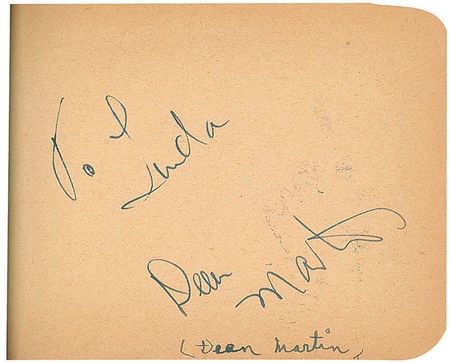 To Linda
Dean
Martin
(Dean Martin)